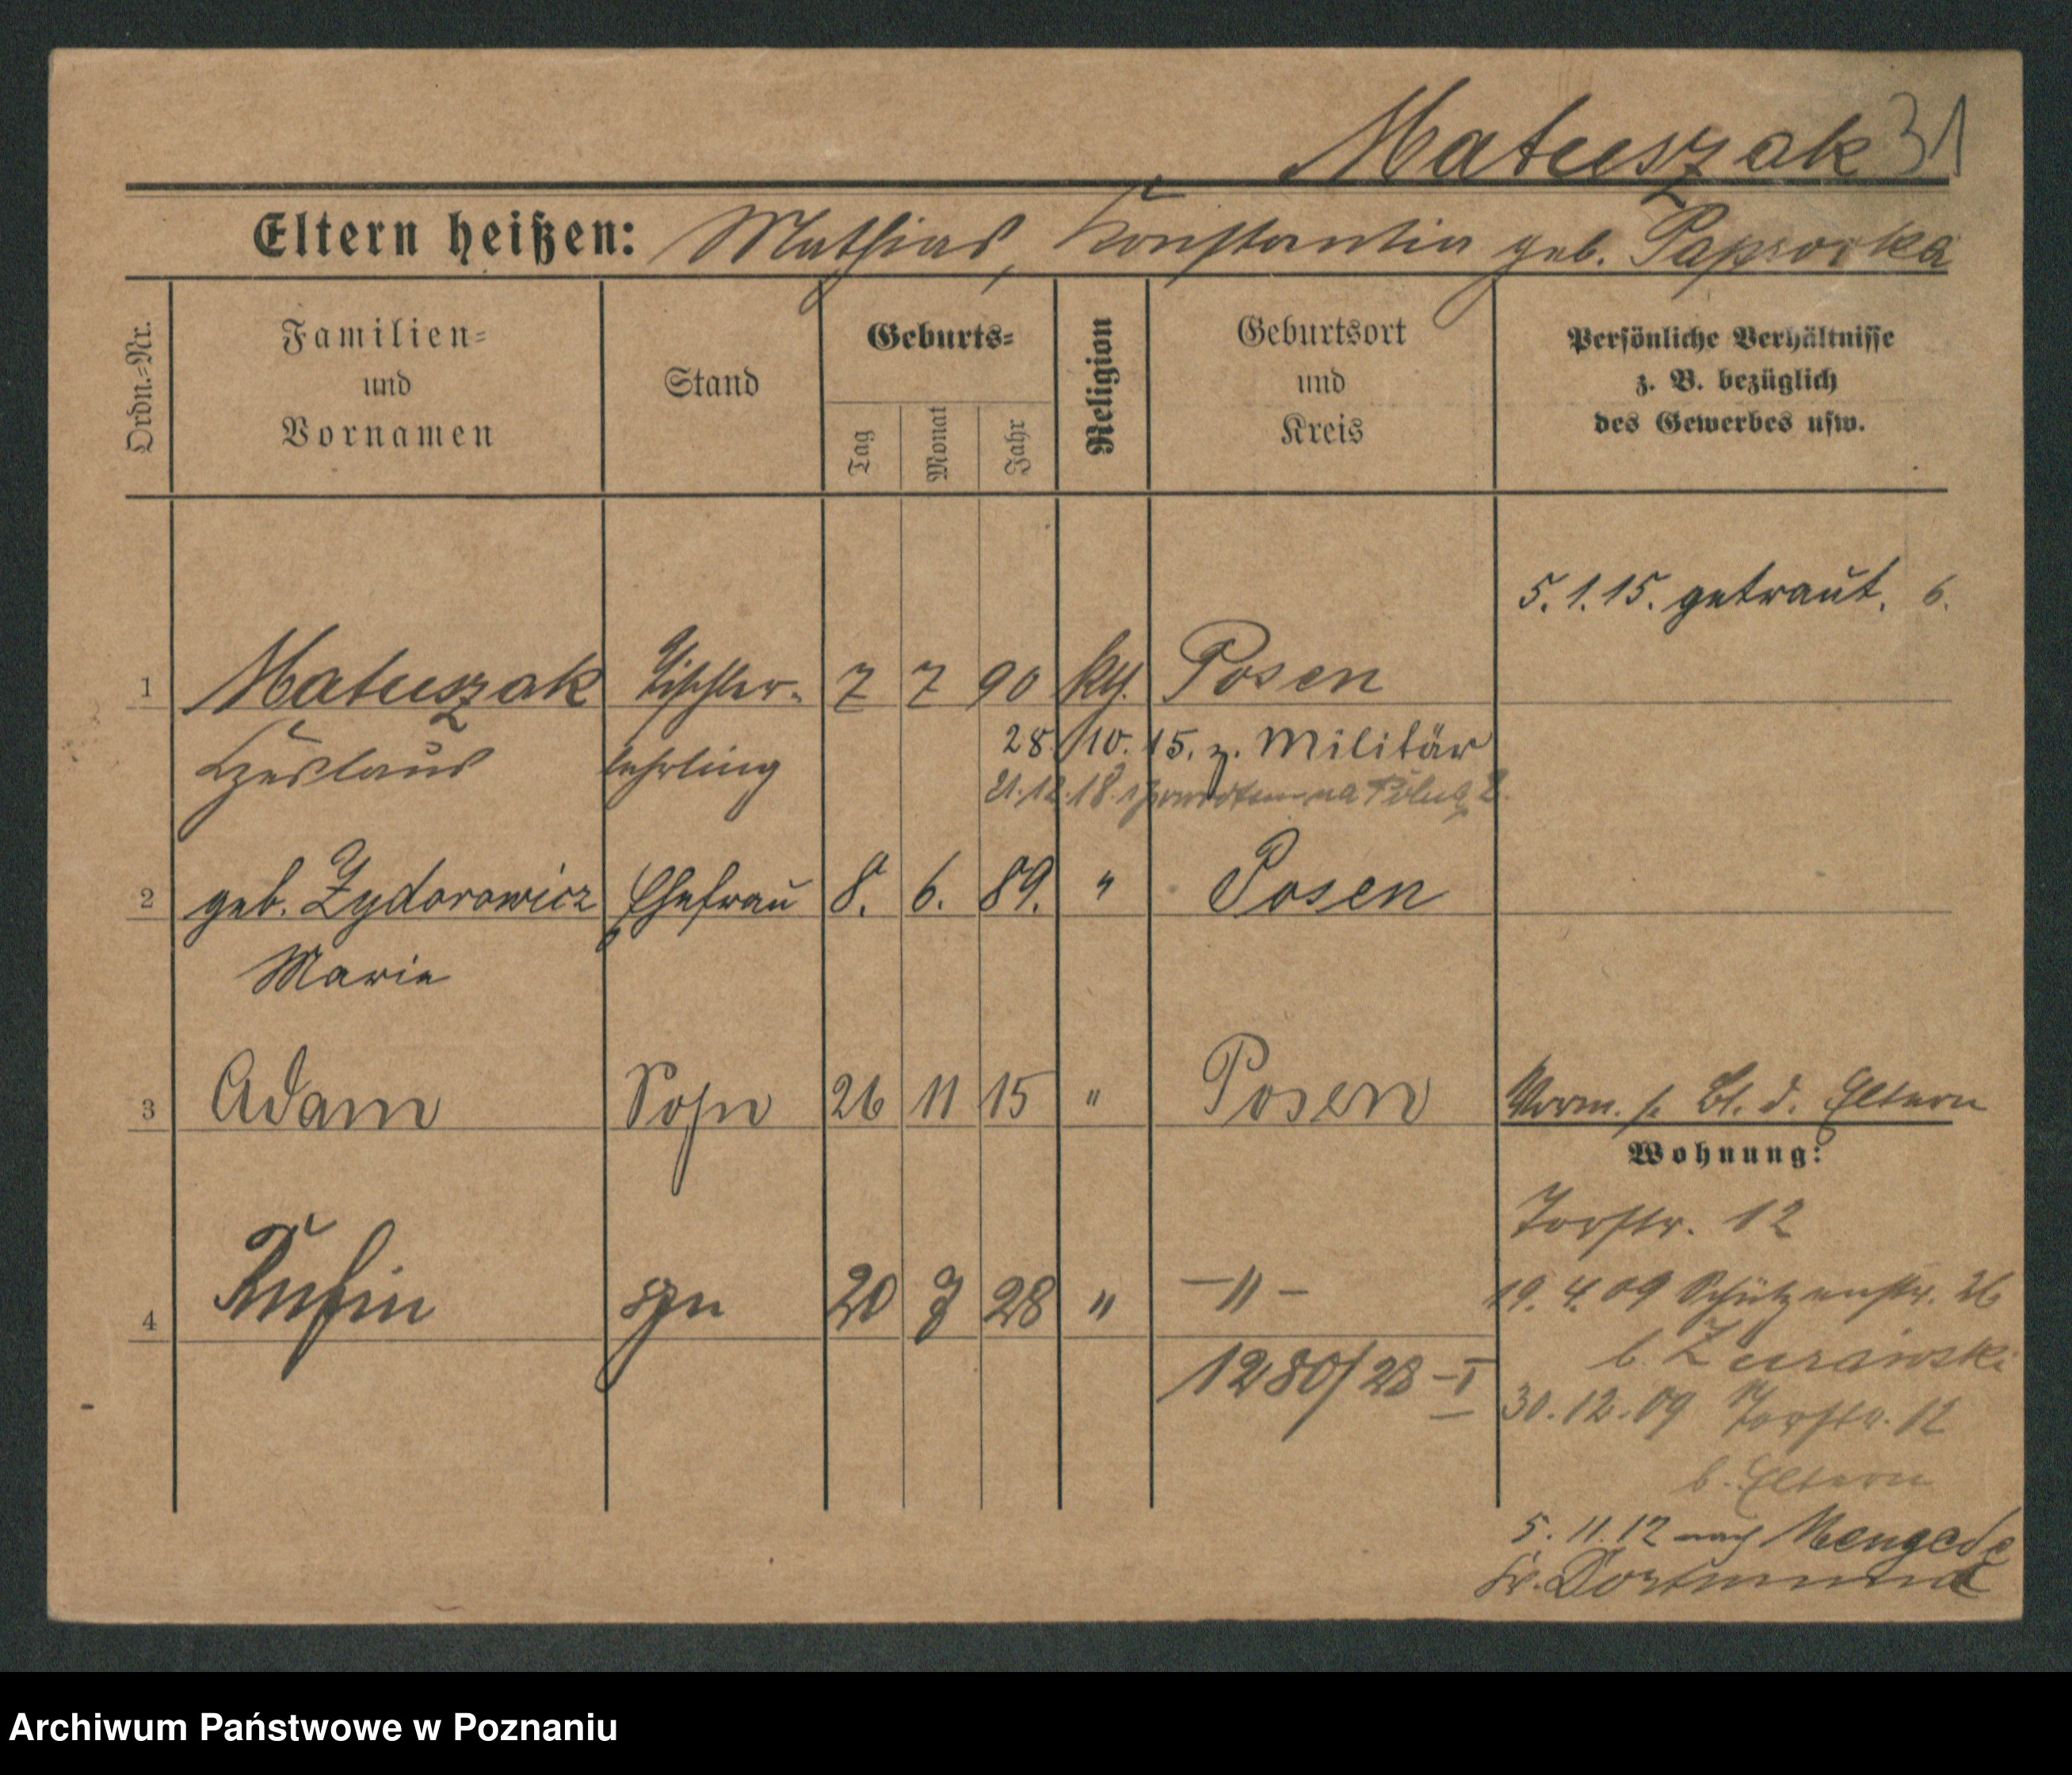 Matuszak 31
Eltern heißen: Mathias, Konstantia geb. Paprocka
Ordn.=Nr.
Familien=
und
Vornamen
Stand
Geburts=
Tag
Monat
Jahr
Religion
Geburtsort
und
Kreis
Persönliche Verhältnisse
z. B. bezüglich
des Gewerbes usw.
5.1.15. getraut. 6.
1 Matuszak Tischler- 7 7 90 kg. Posen
Czeslaus lehrling 28./10.15. z. Militär
21.12.18.
2 geb. Zydorowicz Ehefrau 8. 6. 89. " Posen
Marie
3 Adam Sohn 26 11 15 " Posen
Vorm. s. Bl. d. Eltern
Wohnung:
Torstr. 12
4 Rufin syn 20 7 28 " -"-
19. 4. 09 Schützenstr. 26
b. Zurawski
1280/28-I
30.12.09 Torstr. 12
b. Eltern
5.11.12 nach Mengede
Kr. Dortmund
Archiwum Państwowe w Poznaniu